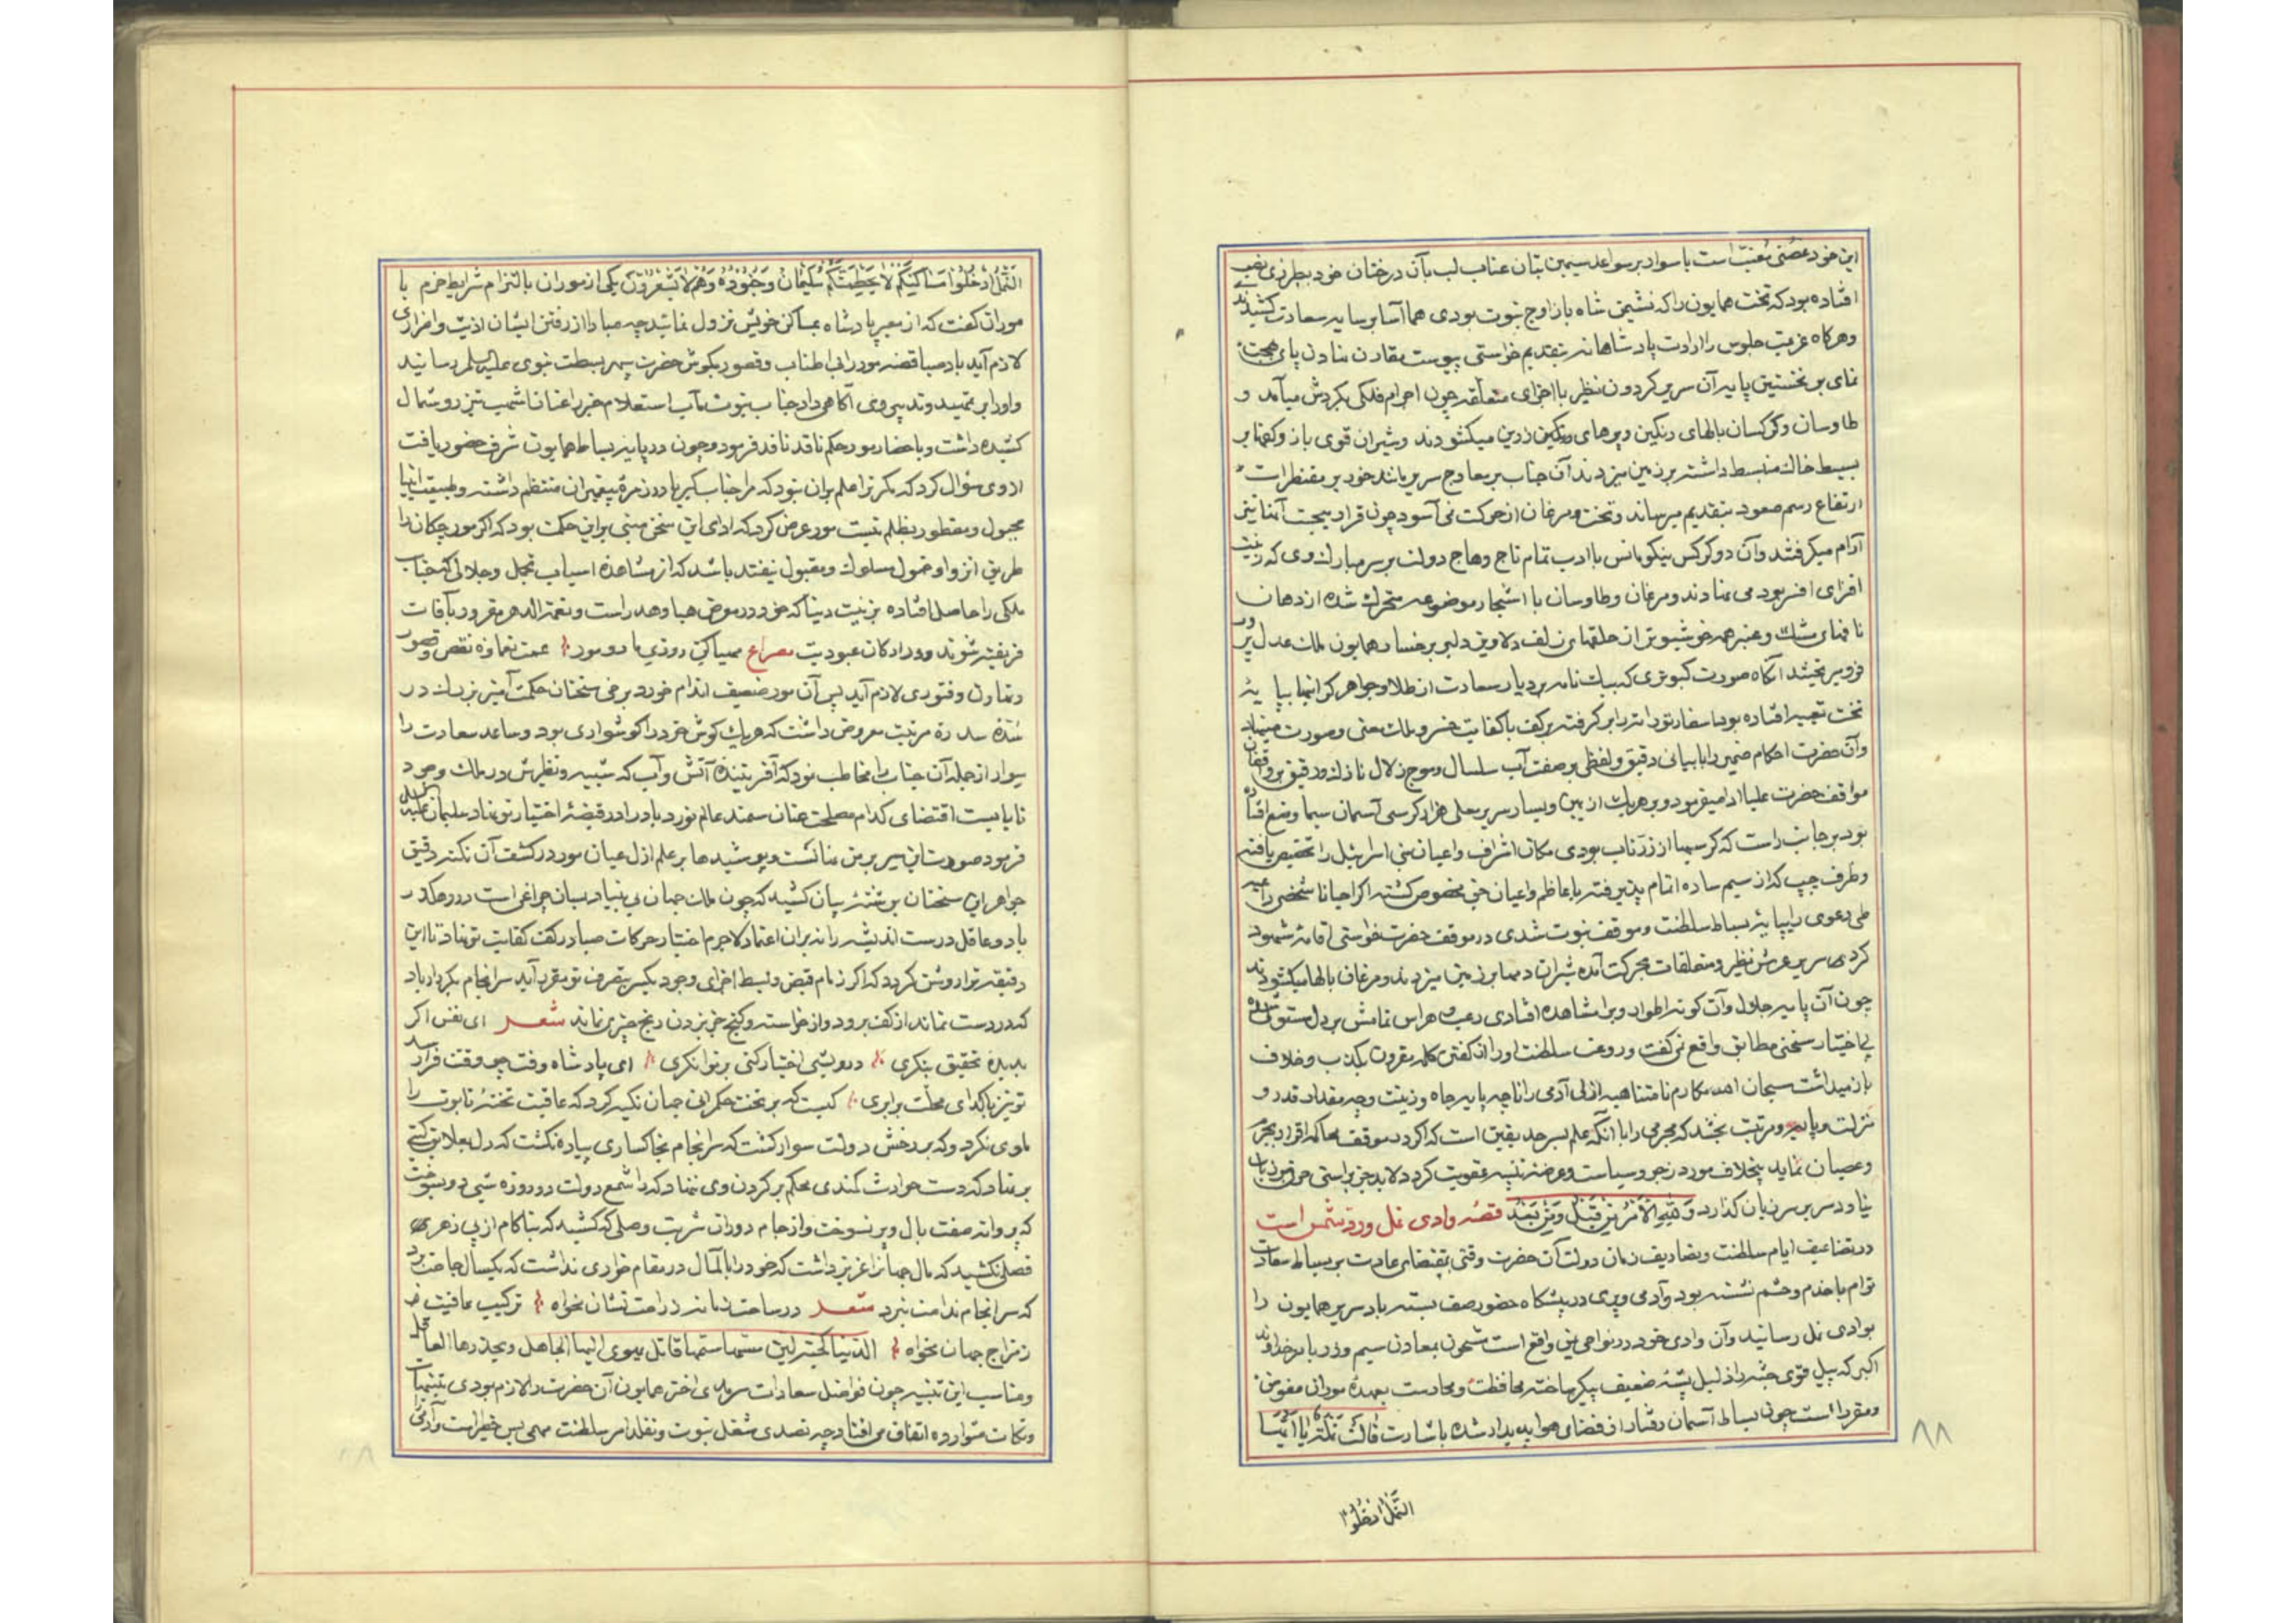 این خود غصنی مغیبست با سواد بر سواعد سیمین بتان عناب لب بآن درختان خود بطرزی نصب
افتاده بود که تخت همایون را که نشیمن شاه باز اوج نبوت بودی هما آسا بر سایه سعادت کشیدند
وهرکاه عزیمت جلوس را ارادت پادشاهانه بتقدیم خواستی پیوست مقارن نهادن پای همجت
نمای بر نخستین پایه آن سریر کردون نظیر با اجزای متعلقه چون اجرام فلکی بکردش میآمد و
طاوسان وکرکسان بالهای رنکین وپرهای رنکین زرین میکشودند وشیران قوی بازو کفها بر
بسیط خاک منبسط داشته بر زمین میزدند آن جناب بر معارج سریر مانند خود بر مقنطرات
ارتفاع رسم صعود بتقدیم میرساند وتخت ومرغان از حرکت نمی آسود چون قرار میجست آنها نیز
آرام میکرفتند وآن دو کرکس نیکو مانس با ادب تمام تاج وهاج دولت بر سر مبارک وی که زینت
افزای افسر بود می نهادند ومرغان وطاوسان با اشجار موضوعه متحرک شده از دهان
نافهای مشک وعنبر همه خوشبوتر از حلقهای زلف دلاویز دلبر بر رخسار همایون ملک عدل پرور
فرو میریختند آنکاه صورت کبوتری که پیک نامه بر دیار سعادت از طلا وجواهر کرانبها بپایه
تخت تعبیه افتاده بود اسفار توراة را بر کرفته بر کف با کفایت خسرو ملک معنی وصورت مینهاد
وآن حضرت احکام ضمیر را با بیانی دقیق ولفظی بر صفت آب سلسال وموج زلال نازک ورقیق بر واقفان
مواقف حضرت علیا ادا میفرمود وبر هر یک از یمین ویسار سریر معلی هزار کرسی آسمان سیما وضع افتاده
بود بر جانب راست که کرسیها از زر ناب بودی مکان اشراف واعیان بنی اسرائیل را تخصیص یافته
وطرف چپ که از سیم ساده اتمام پذیرفته با عاظم واعیان جن مخصوص کشته اکر احیانا شخصی را
طی دعوی را بپایه بساط سلطنت وموقف نبوت شدی در موقف حضرت خواستی اقامه شهود
کردی سریر عرش نظیر ومتعلقات بحرکت آمده شیران دمها بر زمین میزدند ومرغان بالها میکشودند
چون آن پایه جلال وآن کونه اطوار ویرا مشاهده افتادی رعب وهراس تمامش بر دل مستولی شده
بی اختیار سخنی مطابق واقع نمی کفت وروعت سلطنت او را از کفتن کلمه مقرون بکذب وخلاف
باز میداشت سبحان الله مکارم نامتناهیه ازلی آدمی را تا چه پایه جاه وزینت وچه مقدار قدر و
منزلت وپایه ومرتبت بخشد که مجرمی را با آنکه علم بسر حد یقین است که اکر در موقف محاکمه اقرار بجرم
وعصیان نماید بخلاف مورد زجر وسیاست وعرضه تنبیه وعقوبت کردد لابد جز براستی حرفی بر زبان
نیاورد سر بر سر زبان کذارد وَلِلّهِ الْاَمْرُ مِنْ قَبْلُ وَمِنْ بَعْدُ قصه وادی نمل ورد شمس است
در تضاعیف ایام سلطنت وتضاریف زمان دولت آن حضرت وقتی بمقتضای عادت بر بساط سعادت
توام با خدم وحشم نشسته بود وآدمی وپری در پیشکاه حضور صف بسته باد سریر همایون را
بوادی نمل رسانید وآن وادی خود در نواحی یمن واقع است مشحون بمعادن سیم وزر با مر خداوند
اکبر که پیل قوی جثه را ذلیل پشه ضعیف پیکر ساخته محافظت ومحارست بعهده موران مفوض
ومقرر است چون بساط آسمان رفتار از فضای هوا پدیدار شده باشارت قالَتْ نَمْلَةٌ یا اَیُّهَا
النَّمْلُ ادْخُلُوا
٨٨
النَّمْلُ ادْخُلُوا مَساکِنَکُمْ لا یَحْطِمَنَّکُمْ سُلَیْمانُ وَجُنُودُهُ وَهُمْ لا یَشْعُرُونَ یکی از موران بالتزام شرایط حزم با
موران کفت که از معبر پادشاه بمساکن خویش نزول نمائید چه مبادا از رفتن ایشان اذیت واضراری
لازم آید باد صبا قصه مور را بی اطناب وقصور بکوش حضرت سپهر بسطت نبوی علیه السلم رسانید
واو را بر تمهید وتدبیر وی آکاهی داد جناب نبوت مآب استعلام خبر را عنان اشهب تیز رو شمال
کشیده داشت وباحضار مور حکم ناقد نافد فرمود وچون در پایه بساط همایون شرف حضور یافت
از وی سؤال کرد که مکر ترا علم بران نبود که مرا جناب کبریا در زمره پیغمبران منتظم داشته وطبیعت انبیا
مجبول ومفطور بظلم نیست مور عرض کرد که ادای این سخن مبنی بر این حکمت بود که اکر مورچکان را
طریق انزوا وخمول مسلوک ومقبول نیفتد باشد که از مشاهده اسباب تجمل وجلالی که جناب
ملکی را حاصل افتاده بزینت دنیا که خود در معرض هبا وهدر است ونعمة الدهر مقرور بآفات
فریفته شوند ودر ارکان عبودیت مصراع مهیا کن روزی مار ومور عمت نعماؤه نقص وقصور
وتهاون وفتوری لازم آید پس آن مور ضعیف اندام خورد برخی سخنان حکمت آمیز بزرک در
سُدّه سدره مرتبت معروض داشت که هر یک کوش خرد را کوشواری بود وساعد سعادت را
سوار از جمله آن جناب را مخاطب نمود که آفریننده آتش وآب که شبیه ونظیرش در ملک وجود
نایابست اقتضای کدام مصلحت عنان سمند عالم نورد باد را در قبضه اختیار تو نهاد سلیمان علیه السلم
فرمود صورت این سر بر من عنا نیست وپوشیدها بر علم ازل عیان مور در کشف آن نکته دقیق
جواهر این سخنان بر مثقبه بیان کشید که چون ملک جهان بی بنیاد بسان چراغی است در رهکذر
باد وعاقل درست اندیشه را نه بران اعتماد لاجرم اختیار حرکات صبا در کف کفایت تو نهاد تا این
دقیقه ترا روشن کردد که اکر زمام قبض وبسط اجزای وجود یکسر بتصرف تو مقرر آید سر انجام بکردار باد
که در دست نماند از کف برود واز خواسته وکنج جز بردن رنج چیزی نماند شعر ای نفس اکر
بدیده تحقیق بنکری درویشی اختیار کنی بر توانکری ای پادشاه وقت چو وقتت فرا رسد
تو نیز با کدای محلت برابری کیست که بر تخت حکمرانی جهان تکیه کرد که عاقبت تخته تابوت را
ماوی نکرد وکه بر رخش دولت سوار کشت که سر انجام بخاکساری پیاده نکشت که دل بعلایق کیتی
بر نهاد که دست حوادث کمندی محکم بر کردن وی ننهاد که را شمع دولت دو روزه شبی بر افروخت
که پروانه صفت بال وپر نسوخت واز جام دوران شربت وصلی که کشید که بناکام از پی زهری
فصلی نکشید که مال جهانرا عزیز داشت که خود را بالمآل در مقام خواری نداشت که یکسال جاه برد
که سر انجام ندامت نبرد شعر در ساحت زمانه ز راحت نشان نخواه ترکیب عافیت ز
ز مزاج جهان نخواه الدنیا کحیة لین مسها سمها قاتل یهوی الیها الجاهل ویحذرها العاقل
ومناسب این تنبیه چون فواضل سعادات سرمدی اختر همایون آن حضرت را لازم بودی تنبیهات
ونکات متوارده اتفاق می افتاد چه تصدی شغل نبوت وتقلد امر سلطنت مهمی بس خطیر است وآدمی